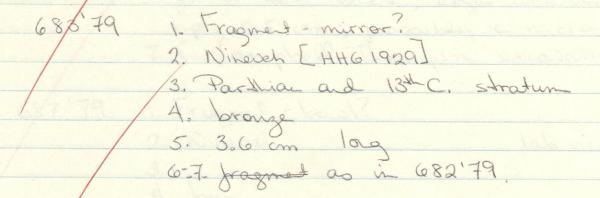 683'79 1. Fragment - mirror?
2. Nineveh [HHG 1929]
3. Parthian and 13th C. stratum
4. bronze
5. 3.6 cm long
6-7. fragment as in 682'79.